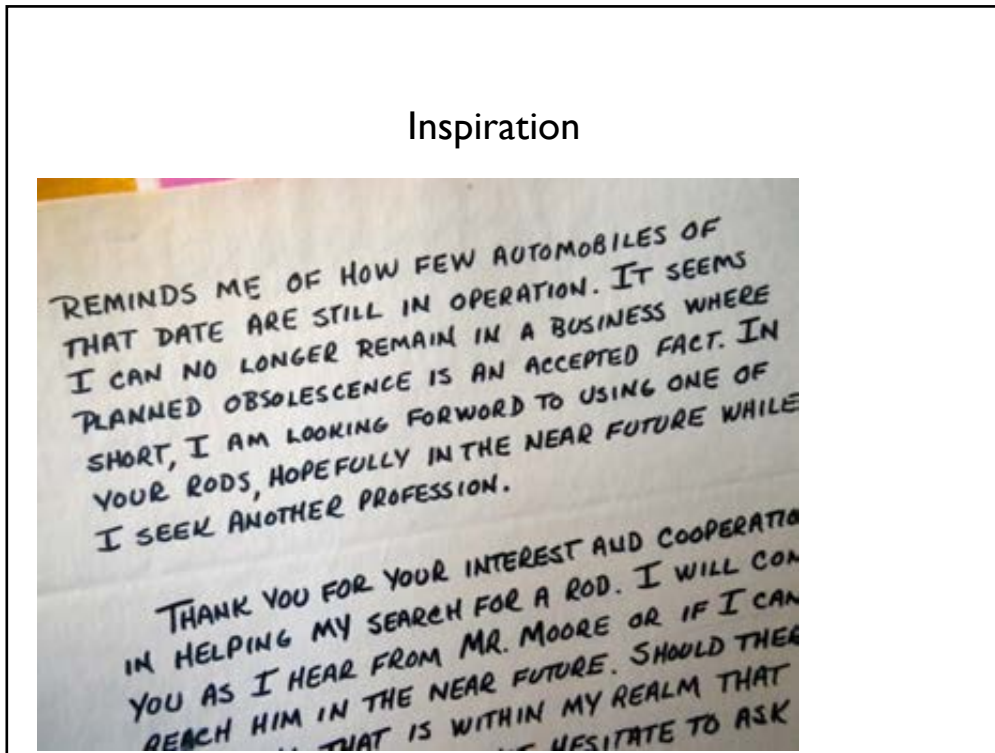 Inspiration
REMINDS ME OF HOW FEW AUTOMOBILES OF
THAT DATE ARE STILL IN OPERATION. IT SEEMS
I CAN NO LONGER REMAIN IN A BUSINESS WHERE
PLANNED OBSOLESCENCE IS AN ACCEPTED FACT. IN
SHORT, I AM LOOKING FORWORD TO USING ONE OF
YOUR RODS, HOPEFULLY IN THE NEAR FUTURE WHILE
I SEEK ANOTHER PROFESSION.
THANK YOU FOR YOUR INTEREST AND COOPERATIO
IN HELPING MY SEARCH FOR A ROD. I WILL CON
YOU AS I HEAR FROM MR. MOORE OR IF I CAN
REACH HIM IN THE NEAR FUTURE. SHOULD THER
THAT IS WITHIN MY REALM THAT
HESITATE TO ASK